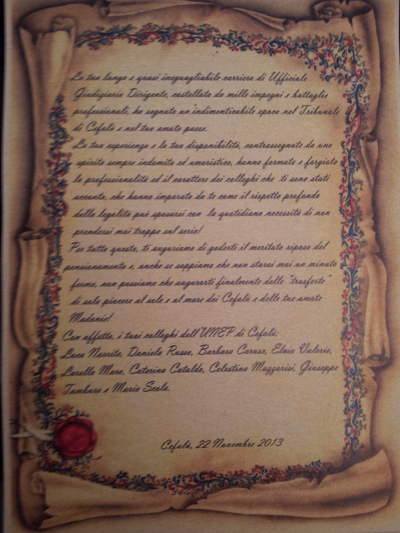 La tua lunga e quasi ineguagliabile carriera di Ufficiale
Giudiziario Dirigente, costellata da mille impegni e battaglie
professionali, ha segnato un'indimenticabile epoca nel Tribunale
di Cefalù e nel tuo amato paese.
La tua esperienza e la tua disponibilità, contrassegnate da uno
spirito sempre indomito ed umoristico, hanno formato e forgiato
la professionalità ed il carattere dei colleghi che ti sono stati
accanto, che hanno imparato da te come il rispetto profondo
della legalità può sposarsi con la quotidiana necessità di non
prendersi mai troppo sul serio!
Per tutto questo, ti auguriamo di goderti il meritato riposo del
pensionamento e, anche se sappiamo che non starai mai un minuto
fermo, non possiamo che augurarti finalmente delle "trasferte"
di solo piacere al sole e al mare della Cefalù e delle tue amate
Madonie!
Con affetto, i tuoi colleghi dell'UNEP di Cefalù:
Luca Daniela Russo, Barbara Caruso, Elvio Valerio,
Mare, Caterina Cataldo, Celestino Giuseppe
Tamburo e Mario Scola.
Cefalù, 22 Novembre 2013